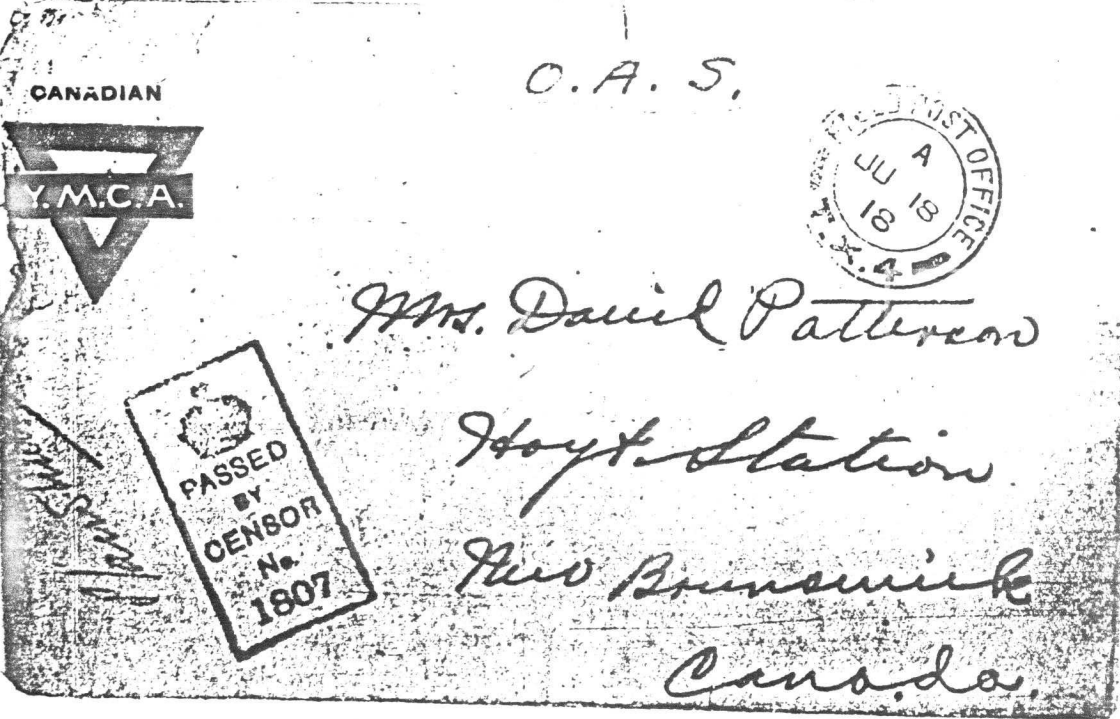 O. A. S.
CANADIAN
Y.M.C.A.
FIELD POST OFFICE
A
JU 18
18
X.4
Mrs. David Patterson
Hoyt Station
New Brunswick
Canada.
PASSED
BY
CENSOR
No.
1807